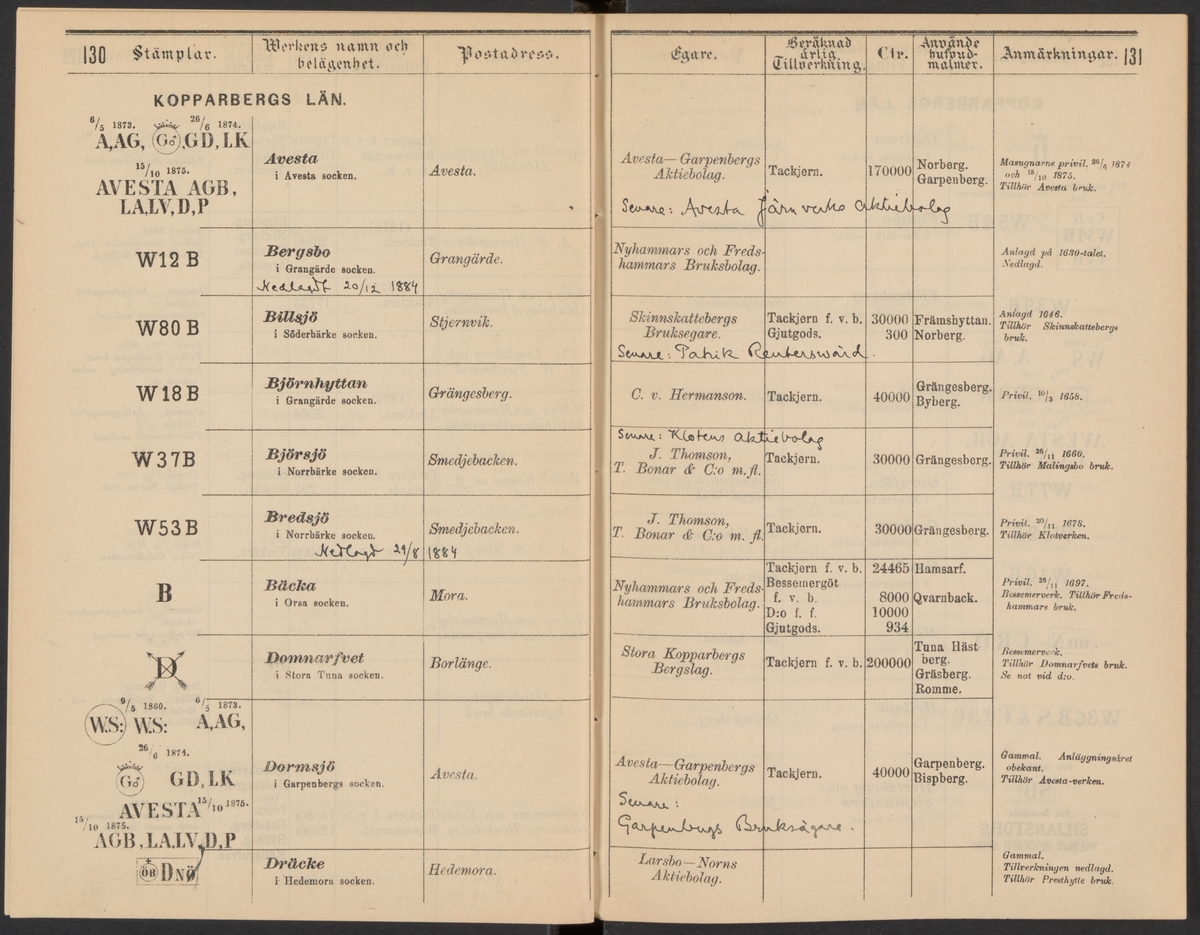 130 Stämplar. Werkens namn och belägenhet. Postadress.
Egare. Beräknad årlig Tillverkning. Ctr. Använde hufvud-malmer. Anmärkningar. 131
KOPPARBERGS LÄN.
6/5 1873. 26/6 1874.
A,AG, Go♂,GD,LK
15/10 1875.
AVESTA AGB,
LA,LV,D,P
Avesta
i Avesta socken.
Avesta.
Avesta—Garpenbergs
Aktiebolag.
Senare: Avesta Järnverks Aktiebolag
Tackjern. 170000
Norberg.
Garpenberg.
Masugnarne privil. 26/6 1874
och 15/10 1875.
Tillhör Avesta bruk.
W12B
Bergsbo
i Grangärde socken.
Nedlagdt 20/12 1884
Grangärde.
Nyhammars och Freds-
hammars Bruksbolag.
Anlagd på 1630-talet.
Nedlagd.
W80B
Billsjö
i Söderbärke socken.
Stjernvik.
Skinnskattebergs
Bruksegare.
Senare: Patrik Reuterswärd.
Tackjern f. v. b. 30000
Gjutgods. 300
Främshyttan.
Norberg.
Anlagd 1646.
Tillhör Skinnskattebergs
bruk.
W18B
Björnhyttan
i Grangärde socken.
Grängesberg.
C. v. Hermanson.
Tackjern. 40000
Grängesberg.
Byberg.
Privil. 10/3 1658.
W37B
Björsjö
i Norrbärke socken.
Smedjebacken.
Senare: Klotens Aktiebolag
J. Thomson,
T. Bonar & C:o m. fl.
Tackjern. 30000
Grängesberg.
Privil. 26/11 1660.
Tillhör Malingsbo bruk.
W53B
Bredsjö
i Norrbärke socken.
Nedlagd 29/8 1884
Smedjebacken.
J. Thomson,
T. Bonar & C:o m. fl.
Tackjern. 30000
Grängesberg.
Privil. 20/11 1678.
Tillhör Klotverken.
B
Bäcka
i Orsa socken.
Mora.
Nyhammars och Freds-
hammars Bruksbolag.
Tackjern f. v. b. 24465
Bessemergöt
f. v. b. 8000
D:o f. f. 10000
Gjutgods. 934
Hamsarf.
Qvarnback.
Privil. 25/11 1697.
Bessemerverk. Tillhör Freds-
hammars bruk.
D
Domnarfvet
i Stora Tuna socken.
Borlänge.
Stora Kopparbergs
Bergslag.
Tackjern f. v. b. 200000
Tuna Häst
berg.
Gräsberg.
Romme.
Bessemerverk.
Tillhör Domnarfvets bruk.
Se not vid d:o.
9/5 1860. 6/5 1873.
W.S: W.S: A,AG,
26/6 1874.
Go♂ GD,LK
AVESTA 15/10 1875.
15/10 1875.
AGB,LA,LV,D,P
Dormsjö
i Garpenbergs socken.
Avesta.
Avesta—Garpenbergs
Aktiebolag.
Senare:
Garpenbergs Bruksägare.
Tackjern. 40000
Garpenberg.
Bispberg.
Gammal. Anläggningsåret
obekant.
Tillhör Avesta-verken.
ÖB DNÖ
Dräcke
i Hedemora socken.
Hedemora.
Larsbo—Norns
Aktiebolag.
Gammal.
Tillverkningen nedlagd.
Tillhör Presthytte bruk.